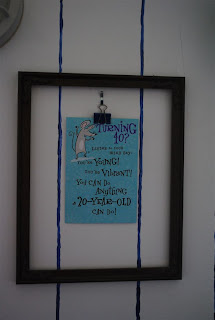 TURNING
40?
YOU'RE YOUNG!
YOU'RE VIBRANT!
YOU CAN DO
ANYTHING
A 20-YEAR-OLD
CAN DO!